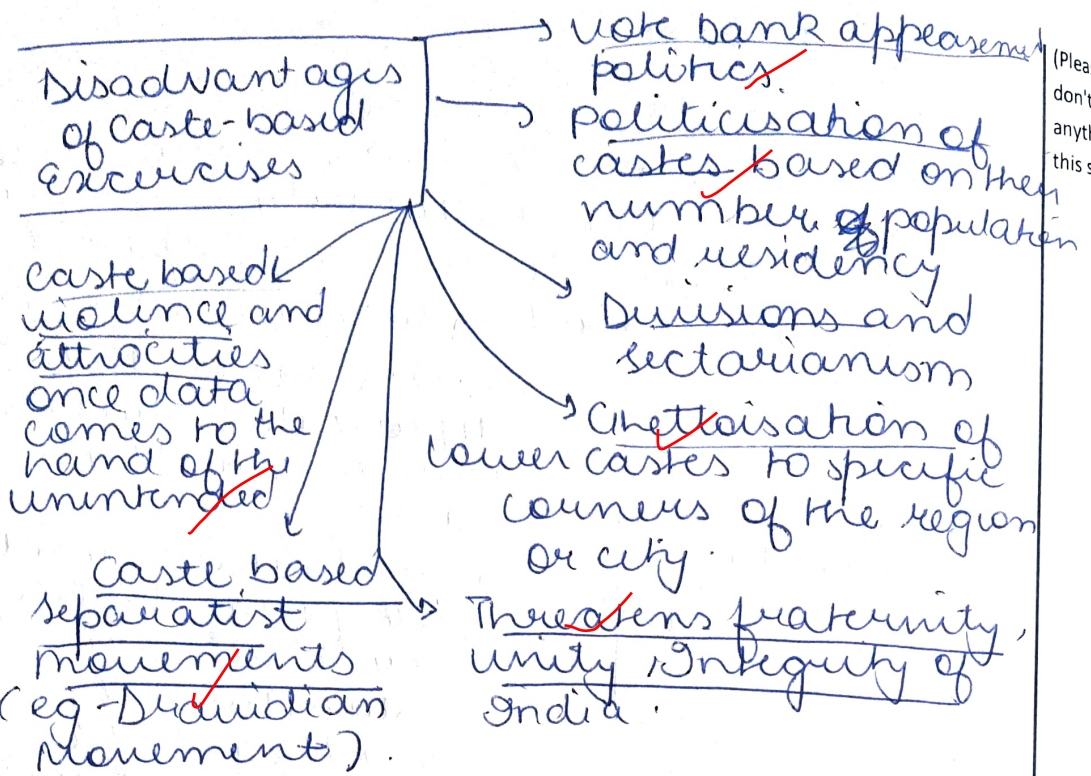 Disadvantages
of Caste-based
Excercises
vote bank appeasement
politics.
politicisation of
castes based on their
number of population
and residency
Divisions and
sectarianism
Ghettoisation of
lower castes to specific
corners of the region
or city.
Threatens fraternity,
unity, Integrity of
India.
Caste based
violence and
attrocities
once data
comes to the
hand of the
unintended
Caste based
separatist
movements
(eg-Dravidian
Movement).
(Plea
don't
anyth
this s